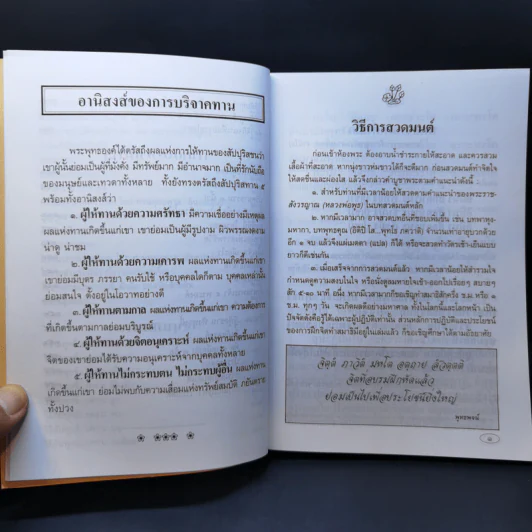 อานิสงส์ของการบริจาคทาน
พระพุทธองค์ได้ตรัสถึงผลแห่งการให้ทานของสัปปุริสชนว่า
เขาผู้นั้นย่อมเป็นผู้ที่มั่งคั่ง มีทรัพย์มาก มีอำนาจมาก เป็นที่รักนับถือ
ของมนุษย์และเทวดาทั้งหลาย ทั้งยังทรงตรัสถึงสัปปุริสทาน ๕
พร้อมทั้งอานิสงส์ว่า
๑. ผู้ให้ทานด้วยความศรัทธา มีความเชื่ออย่างมีเหตุผล
ผลแห่งทานเกิดขึ้นแก่เขา เขาย่อมเป็นผู้มีรูปงาม ผิวพรรณงดงาม
น่าดู น่าชม
๒. ผู้ให้ทานด้วยความเคารพ ผลแห่งทานเกิดขึ้นแก่เขา
เขาย่อมมีบุตร ภรรยา คนรับใช้ หรือบุคคลใดก็ตาม บุคคลเหล่านั้น
ย่อมสนใจ ตั้งอยู่ในโอวาทอย่างดี
๓. ผู้ให้ทานตามกาล ผลแห่งทานเกิดขึ้นแก่เขา ความต้องการ
ที่เกิดขึ้นตามกาลย่อมบริบูรณ์
๔. ผู้ให้ทานด้วยจิตอนุเคราะห์ ผลแห่งทานเกิดขึ้นแก่เขา
จิตของเขาย่อมได้รับความอนุเคราะห์จากบุคคลทั้งหลาย
๕. ผู้ให้ทานไม่กระทบตน ไม่กระทบผู้อื่น ผลแห่งทาน
เกิดขึ้นแก่เขา ย่อมไม่พบกับความเสื่อมแห่งทรัพย์สมบัติ ภยันตราย
ทั้งปวง
วิธีการสวดมนต์
ก่อนเข้าห้องพระ ต้องอาบน้ำชำระกายให้สะอาด และควรสวม
เสื้อผ้าที่สะอาด หากนุ่งขาวห่มขาวได้ก็จะดีมาก ก่อนสวดมนต์ทำจิตใจ
ให้สดชื่นและผ่องใส แล้วจึงกล่าวคำบูชาพระตามคำแนะนำดังนี้
๑. สำหรับท่านที่มีเวลาน้อยให้สวดตามคำแนะนำของพระราช-
สังวรญาณ (หลวงพ่อพุธ) ในบทสวดมนต์หลัก
๒. หากมีเวลามาก อาจสวดบทอื่นที่ชอบเพิ่มขึ้น เช่น บทพาหุง-
มหากา, บทพุทธคุณ (อิติปิ โส...พุทโธ ภควาติ) จำนวนเท่าอายุบวกด้วย
อีก ๑ จบ แล้วจึงแผ่เมตตา (แปล) ก็ได้ หรือจะสวดทำวัตรเช้า-เย็นแบบ
ยาวก็ดีเช่นกัน
๓. เมื่อเสร็จจากการสวดมนต์แล้ว หากมีเวลาน้อยให้สำรวมใจ
กำหนดดูความสงบในใจ หรือนั่งดูลมหายใจเข้า-ออกไปเรื่อยๆ สบายๆ
สัก ๕-๑๐ นาที
จิตฺตํ ภาวิตํ มหโต อตฺถาย สํวตฺตติ
จิตที่อบรมฝึกหัดแล้ว
ย่อมเป็นไปเพื่อประโยชน์อันยิ่งใหญ่
พุทธพจน์